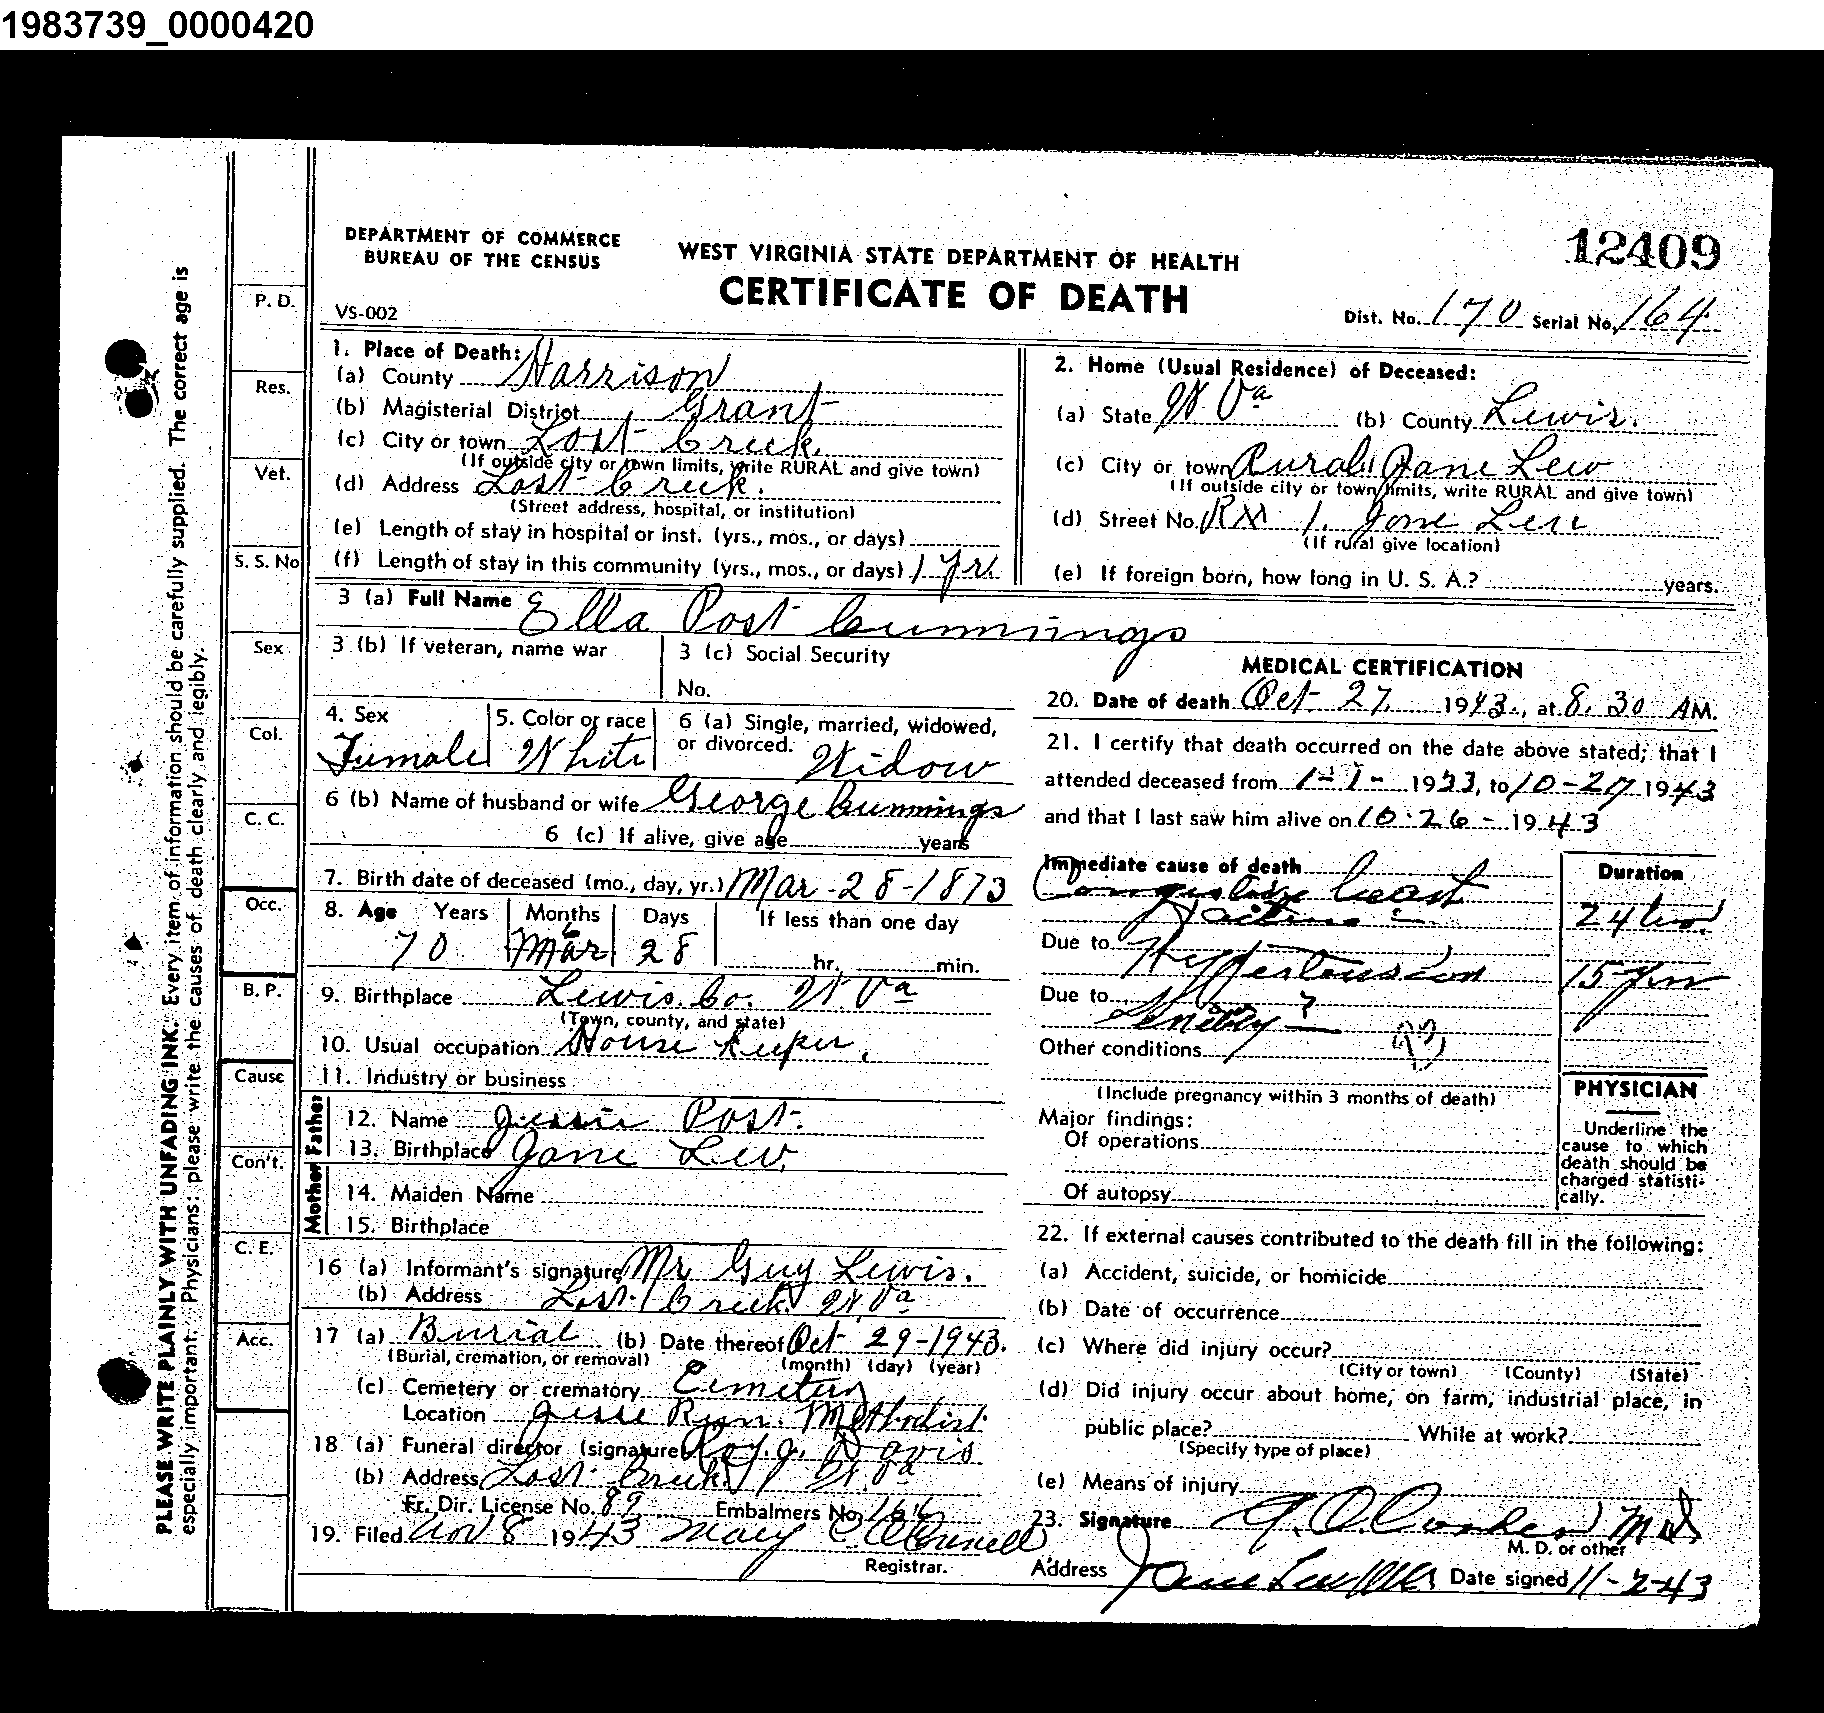 1983739_0000420
DEPARTMENT OF COMMERCE
BUREAU OF THE CENSUS
WEST VIRGINIA STATE DEPARTMENT OF HEALTH
CERTIFICATE OF DEATH
12409
VS-002
Dist. No. 170 Serial No. 164
PLEASE WRITE PLAINLY WITH UNFADING INK. Every item of information should be carefully supplied. The correct age is
especially important. Physicians: please write the causes of death clearly and legibly.
P. D.
Res.
Vet.
S. S. No
Sex
Col.
C. C.
Occ.
B. P.
Cause
Con't.
C. E.
Acc.
1. Place of Death:
(a) County Harrison
(b) Magisterial District Grant
(c) City or town Lost Creek.
(If outside city or town limits, write RURAL and give town)
(d) Address Lost Creek.
(Street address, hospital, or institution)
(e) Length of stay in hospital or inst. (yrs., mos., or days)
(f) Length of stay in this community (yrs., mos., or days) 1 yr.
2. Home (Usual Residence) of Deceased:
(a) State W Va (b) County Lewis.
(c) City or town Rural Jane Lew
(If outside city or town limits, write RURAL and give town)
(d) Street No. 1. Jane Lew
(If rural give location)
(e) If foreign born, how long in U. S. A.? years.
3 (a) Full Name Ella Post Cummings
3 (b) If veteran, name war
3 (c) Social Security
No.
4. Sex
Female
5. Color or race
White
6 (a) Single, married, widowed,
or divorced. Widow
6 (b) Name of husband or wife George Cummings
6 (c) If alive, give age years
7. Birth date of deceased (mo., day, yr.) Mar-28-1873
8. Age Years Months Days If less than one day
6
70 Mar 28 hr. min.
9. Birthplace Lewis Co. W Va
(Town, county, and state)
10. Usual occupation House Keeper.
11. Industry or business
Father
12. Name Jessie Post.
13. Birthplace Jane Lew.
Mother
14. Maiden Name
15. Birthplace
16 (a) Informant's signature Mr Guy Lewis.
(b) Address Lost Creek W Va
17 (a) Burial (b) Date thereof Oct 29-1943.
(Burial, cremation, or removal) (month) (day) (year)
(c) Cemetery or crematory Cemetery
Location Jesse Run. Methodist.
18 (a) Funeral director (signature) Roy. J. Davis
(b) Address Lost Creek W Va
Fr. Dir. License No. 89 Embalmers No.
19. Filed Nov 8 1943 Mary C O'Connell
Registrar.
MEDICAL CERTIFICATION
20. Date of death Oct 27 1943., at 8.30 AM.
21. I certify that death occurred on the date above stated; that I
attended deceased from 1-1- 1933, to 10-27 1943
and that I last saw him alive on 10-26- 1943
Immediate cause of death
Congestive heart
Failure
Due to Hypertension
Due to
Senility ?
Other conditions
(Include pregnancy within 3 months of death)
Major findings:
Of operations
Of autopsy
Duration
24 hrs
15 yrs
PHYSICIAN
Underline the
cause to which
death should be
charged statisti-
cally.
22. If external causes contributed to the death fill in the following:
(a) Accident, suicide, or homicide
(b) Date of occurrence
(c) Where did injury occur?
(City or town) (County) (State)
(d) Did injury occur about home, on farm, industrial place, in
public place? While at work?
(Specify type of place)
(e) Means of injury
23. Signature MD
M. D. or other
Address Jane Lew WVa Date signed 11-2-43